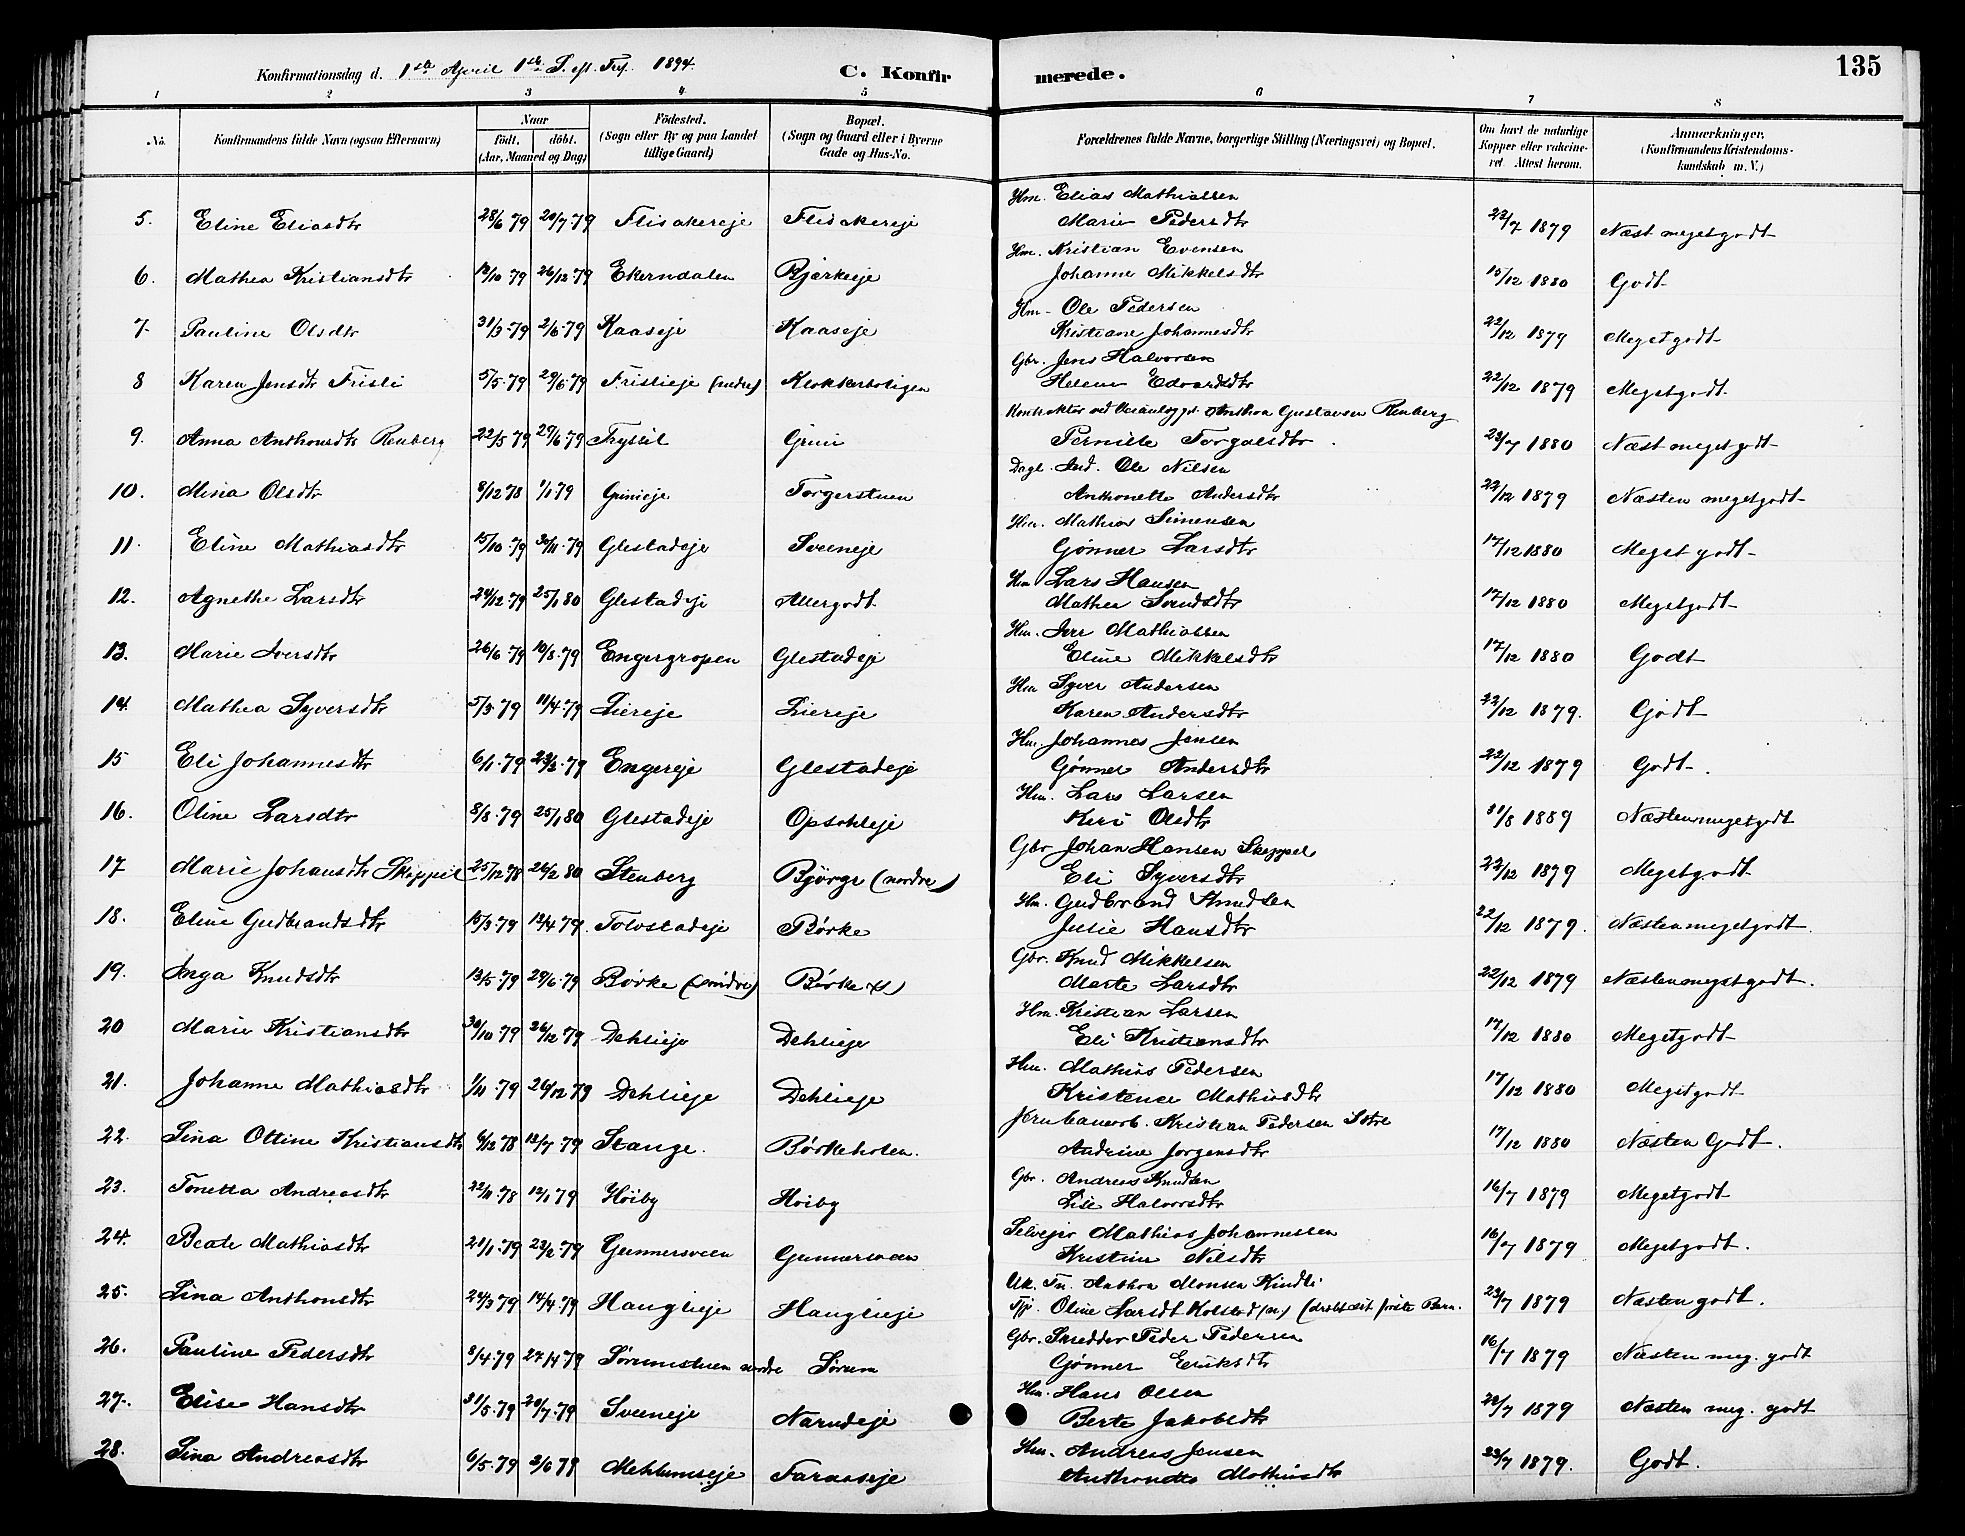 135
Konfirmationsdag d. 1ste April 1ste S. eft. Trf. 1894. C. Konfirmerede.
1 2 3 4 5 6 7 8
No. Konfirmandens fulde Navn (ogsaa Efternavn) Naar født. døbt. (Aar, Maaned og Dag) Fødested. (Sogn eller By og paa Landet tillige Gaard) Bopæl. (Sogn og Gaard eller i Byerne Gade og Hus-No. Forældrenes fulde Navne, borgerlige Stilling (Næringsvei) og Bopæl. Om havt de naturlige Kopper eller vakcineret. Attest herom. Anmærkninger. (Konfirmandens Kristendomskundskab m. V.)
5. Eline Eliasdtr 28/6 79 20/7.79 Flisakereje Flisakereje Hm. Elias Mathiassen
Marie Pedersdtr 22/7 1879 Næst megetgodt
6. Mathea Kristiansdtr 12/10 79 26/12.79 Ekerndalen Bjørkeeje Hm. Kristian Evensen
Johanne Mikkelsdtr 15/12 1880 Godt
7. Pauline Olsdtr 31/3.79 2/6.79 Kaaseje Kaaseje Hm. Ole Pedersen
Kristiane Johannesdtr 22/12 1879 Megetgodt
8 Karen Jensdtr Frisli 5/5.79 29/6.79 Frislieje (nedre) Klokkerboligen Gbr. Jens Halvorsen
Helene Edvardsdtr 22/12 1879 Megetgodt.
9. Anna Anthonsdtr Renberg 22/5 79 29/6 79 Trysil Grini Kontraktør ved Anthon Gustavsen Renberg
Pernille Torgalsdtr. 23/7 1880 Næst megetgodt
10. Mina Olsdtr 8/12 78 1/1 79 Grinieje Torgerstuen Dagl. Ole Nilsen
Anthonette Andersdtr 22/12 1879 Næsten megetgodt
11. Eline Mathiasdtr 15/10 79 30/11.79 Glestadeje Sveeneje Hm. Mathias Simensen
Gønner Larsdtr 17/12 1880 Meget godt
12. Agnethe Larsdtr 24/12 79 25/1 80 Glestadeje Allergodt Hm Lars Hansen
Mathea Svendsdtr 17/12 1880 Megetgodt
13. Marie Iversdtr 26/6 79 10/8.79 Engergropen Glestadeje Hm. Iver Mathiassen
Eline Mikkelsdtr 17/12 1880 Godt
14. Mathea Syversdtr 5/3 79 11/4.79 Liereje Liereje Hm Syver Andersen
Karen Andersdtr 22/12 1879. Godt
15 Eli Johannesdtr 6/1.79 23/2.79 Engereje Glestadeje Hm. Johannes Jensen
Gønner Andersdtr 22/12 1879 Godt.
16. Oline Larsdtr 8/8.79 25/1 80 Glestadeje Opsahleje Hm. Lars Larsen
Olsdtr 31/8 1889 Næstenmegetgodt
17 Marie Johansdtr Skeppel 25/12 78 26/2 80 Stenberg Bjørge (nordre) Gbr Johan Hansen Skeppel
Eli Syversdtr 22/12 1879 Megetgodt
18. Eline Gudbrandsdtr 15/3 79 12/4 79. Tolvstadeje Børke Hm. Gudbrand Knudsen
Julie Hansdtr 22/12 1879. Næstenmegetgodt.
19. Inga Knudsdtr 13/5.79 29/6.79 Børke (søndre) Børke (s) Gbr. Knud Mikkelsen
Marte Larsdtr 22/12 1879 Næstenmegetgodt.
20 Marie Kristiansdtr 30/10 79 26/12 79 Dehlieje Dehlieje Hm. Kristian Larsen
Eli Kristiansdtr 17/12 1880 Megetgodt
21. Johanne Mathiasdtr 1/11.79 26/12 79 Dehlieje Dehlieje Hm. Mathias Pedersen
Kristence Mathiasdtr 17/12 1880 Megetgodt
22. Lina Ottine Kristiansdtr 6/12 78 12/7 79 Stange. Børkeholen. Jernbanearb. Kristian Pedersen
Andrine Jørgensdtr 17/12 1880 Næsten Godt.
23. Tonetta Andreasdtr 22/11.78 12/1 79 Høiby Høiby Gbr. Andreas Knudsen
Lise Halvorsdtr 16/7 1879 Megetgodt
24. Beate Mathiasdtr 21/1.79 23/2.79 Gunnersveen Gunnarsveen Selvejer Mathias Johannessen
Kristine Nilsdtr 16/7 1879 Megetgodt.
25. Lina Anthonsdtr 24/3 79 14/4 79 Hauglieje Hauglieje Uk. Tn. Anthon Monsen Kindli
Tjp. Oline Larsdt Kolstad (n) første Barn. 23/7 1879 Næsten godt.
26. Pauline Pedersdtr 8/4.79 27/4 79 Sørumstuen nordre Sørum Gbr. Skrædder Peder Pedersen
Gønner Eriksdtr 16/7 1879 Næsten meg. godt
27. Elise Hansdtr 31/5.79 20/7.79 Sveeneje Narudeje Hm. Hans Olsen
Berte Jakobsdtr 22/7 1879 Næsten meg. godt
28. Lina Andreasdtr 6/5.79 2/6 79 Mehlumseje Faraaseje Hm. Andreas Jensen
Anthonette Mathiasdtr 23/7 1879. Godt.